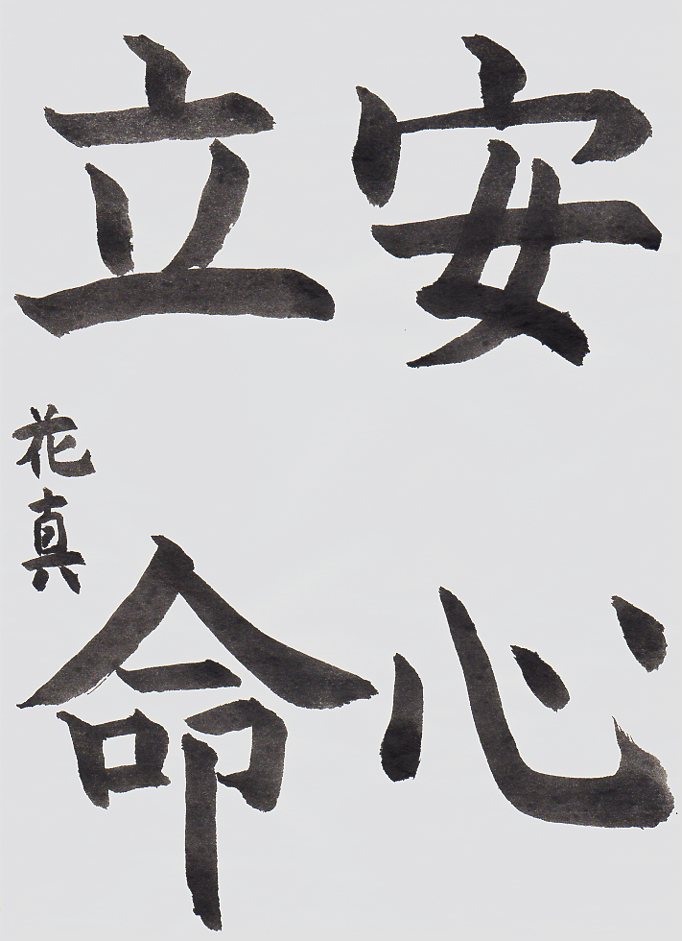 安心
立命
花真